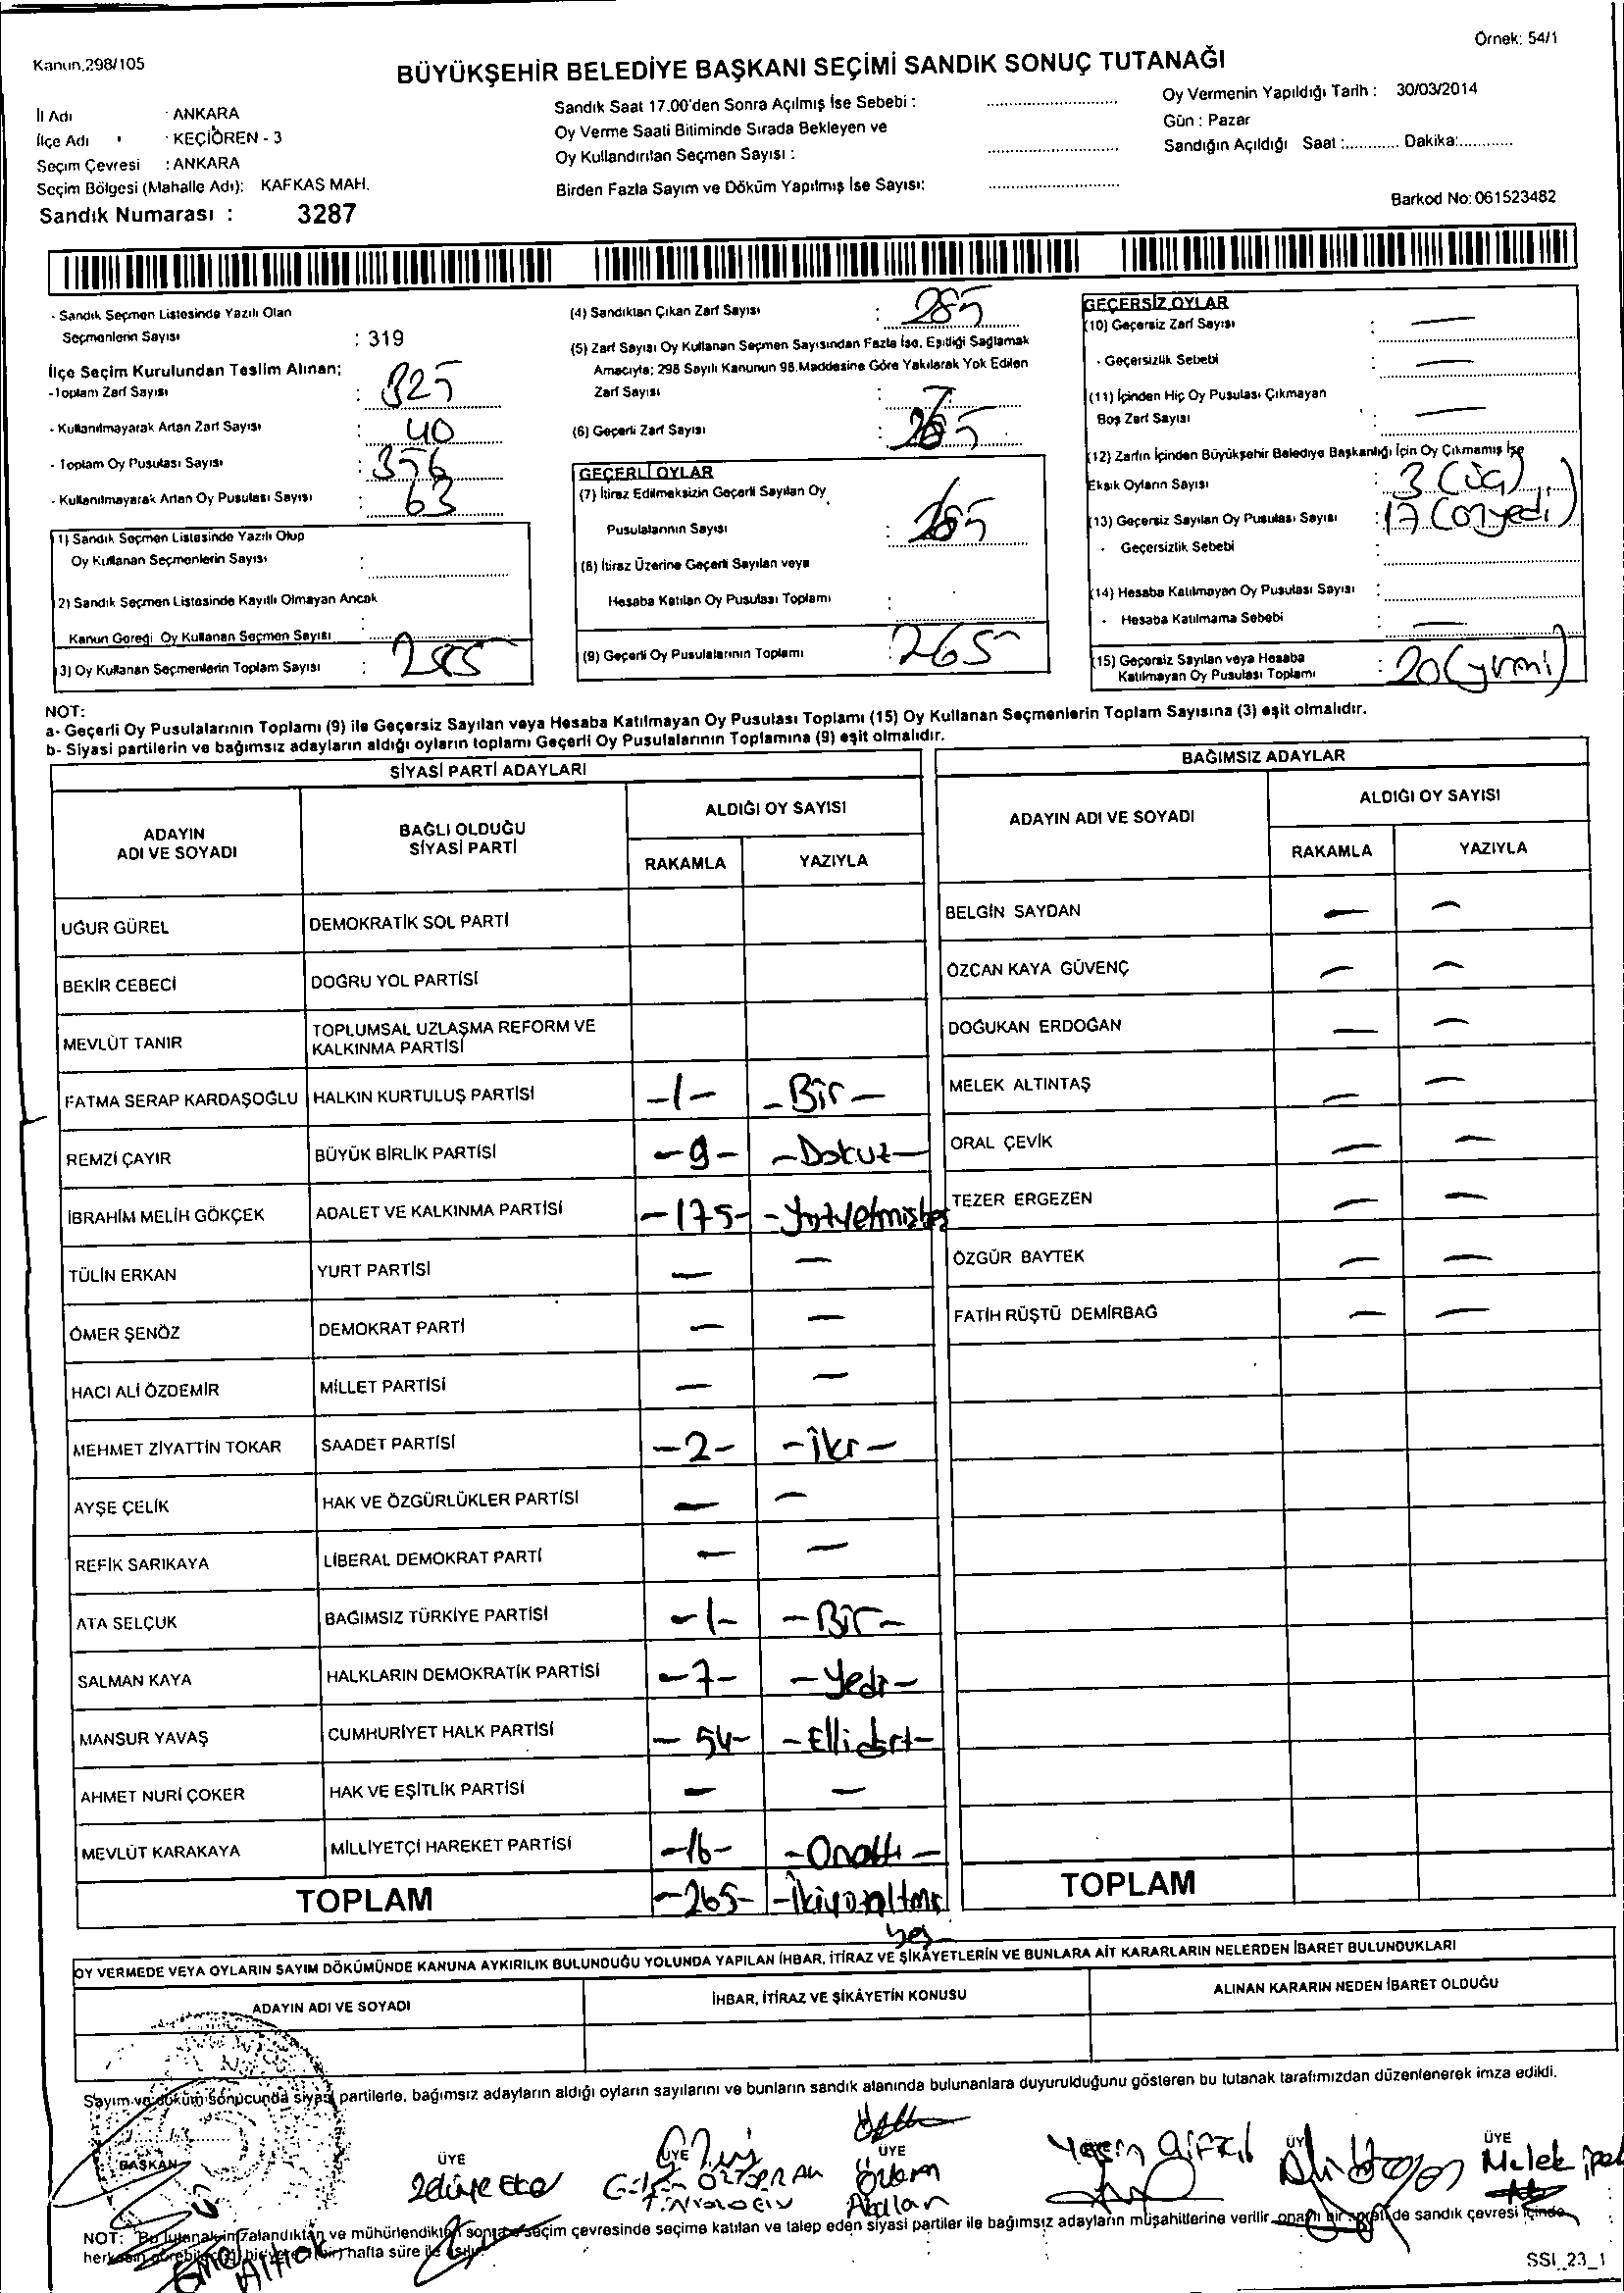 Örnek: 54/1
Kanun,298/105
BÜYÜKŞEHİR BELEDİYE BAŞKANI SEÇİMİ SANDIK SONUÇ TUTANAĞI
İl Adı : ANKARA
İlçe Adı : KEÇİÖREN - 3
Seçim Çevresi : ANKARA
Seçim Bölgesi (Mahalle Adı): KAFKAS MAH.
Sandık Numarası : 3287
Sandık Saat 17.00'den Sonra Açılmış İse Sebebi :
Oy Verme Saati Bitiminde Sırada Bekleyen ve
Oy Kullandırılan Seçmen Sayısı :
Birden Fazla Sayım ve Döküm Yapılmış İse Sayısı:
Oy Vermenin Yapıldığı Tarih : 30/03/2014
Gün : Pazar
Sandığın Açıldığı Saat :............ Dakika:............
Barkod No: 061523482
- Sandık Seçmen Listesinde Yazılı Olan
Seçmenlerin Sayısı : 319
İlçe Seçim Kurulundan Teslim Alınan;
-Toplam Zarf Sayısı : 325
- Kullanılmayarak Artan Zarf Sayısı : 40
- Toplam Oy Pusulası Sayısı : 356
- Kullanılmayarak Artan Oy Pusulası Sayısı : 63
1) Sandık Seçmen Listesinde Yazılı Olup
Oy Kullanan Seçmenlerin Sayısı :
2) Sandık Seçmen Listesinde Kayıtlı Olmayan Ancak
Kanun Gereği Oy Kullanan Seçmen Sayısı :
3) Oy Kullanan Seçmenlerin Toplam Sayısı : 285
(4) Sandıktan Çıkan Zarf Sayısı : 285
(5) Zarf Sayısı Oy Kullanan Seçmen Sayısından Fazla İse, Eşitliği Sağlamak
Amacıyla; 298 Sayılı Kanunun 98.Maddesine Göre Yakılarak Yok Edilen
Zarf Sayısı :
(6) Geçerli Zarf Sayısı : 265
GEÇERLİ OYLAR
(7) İtiraz Edilmeksizin Geçerli Sayılan Oy
Pusulalarının Sayısı : 265
(8) İtiraz Üzerine Geçerli Sayılan veya
Hesaba Katılan Oy Pusulası Toplamı :
(9) Geçerli Oy Pusulalarının Toplamı : 265
GEÇERSİZ OYLAR
(10) Geçersiz Zarf Sayısı : —
- Geçersizlik Sebebi : —
(11) İçinden Hiç Oy Pusulası Çıkmayan
Boş Zarf Sayısı : —
(12) Zarfın İçinden Büyükşehir Belediye Başkanlığı İçin Oy Çıkmamış İse
Eksik Oyların Sayısı : 3 (üç)
(13) Geçersiz Sayılan Oy Pusulası Sayısı : 17 (onyedi)
- Geçersizlik Sebebi :
(14) Hesaba Katılmayan Oy Pusulası Sayısı :
- Hesaba Katılmama Sebebi : —
(15) Geçersiz Sayılan veya Hesaba
Katılmayan Oy Pusulası Toplamı : 20 (yirmi)
NOT:
a- Geçerli Oy Pusulalarının Toplamı (9) ile Geçersiz Sayılan veya Hesaba Katılmayan Oy Pusulası Toplamı (15) Oy Kullanan Seçmenlerin Toplam Sayısına (3) eşit olmalıdır.
b- Siyasi partilerin ve bağımsız adayların aldığı oyların toplamı Geçerli Oy Pusulalarının Toplamına (9) eşit olmalıdır.
SİYASİ PARTİ ADAYLARI
ADAYIN ADI VE SOYADI
BAĞLI OLDUĞU SİYASİ PARTİ
ALDIĞI OY SAYISI
RAKAMLA YAZIYLA
UĞUR GÜREL DEMOKRATİK SOL PARTİ
BEKİR CEBECİ DOĞRU YOL PARTİSİ
MEVLÜT TANIR TOPLUMSAL UZLAŞMA REFORM VE KALKINMA PARTİSİ
FATMA SERAP KARDAŞOĞLU HALKIN KURTULUŞ PARTİSİ -1- - Bir -
REMZİ ÇAYIR BÜYÜK BİRLİK PARTİSİ -9- - Dokuz -
İBRAHİM MELİH GÖKÇEK ADALET VE KALKINMA PARTİSİ -175- - Yüzyetmişbeş
TÜLİN ERKAN YURT PARTİSİ — —
ÖMER ŞENÖZ DEMOKRAT PARTİ — —
HACI ALİ ÖZDEMİR MİLLET PARTİSİ — —
MEHMET ZİYATTİN TOKAR SAADET PARTİSİ -2- - İki -
AYŞE ÇELİK HAK VE ÖZGÜRLÜKLER PARTİSİ — —
REFİK SARIKAYA LİBERAL DEMOKRAT PARTİ — —
ATA SELÇUK BAĞIMSIZ TÜRKİYE PARTİSİ -1- - Bir -
SALMAN KAYA HALKLARIN DEMOKRATİK PARTİSİ -7- - Yedi -
MANSUR YAVAŞ CUMHURİYET HALK PARTİSİ - 54- - Ellidört -
AHMET NURİ ÇOKER HAK VE EŞİTLİK PARTİSİ — —
MEVLÜT KARAKAYA MİLLİYETÇİ HAREKET PARTİSİ -16- - Onaltı -
TOPLAM -265- - İkiyüzaltmış
beş
BAĞIMSIZ ADAYLAR
ADAYIN ADI VE SOYADI
ALDIĞI OY SAYISI
RAKAMLA YAZIYLA
BELGİN SAYDAN — —
ÖZCAN KAYA GÜVENÇ — —
DOĞUKAN ERDOĞAN — —
MELEK ALTINTAŞ — —
ORAL ÇEVİK — —
TEZER ERGEZEN — —
ÖZGÜR BAYTEK — —
FATİH RÜŞTÜ DEMİRBAĞ — —
TOPLAM
OY VERMEDE VEYA OYLARIN SAYIM DÖKÜMÜNDE KANUNA AYKIRILIK BULUNDUĞU YOLUNDA YAPILAN İHBAR, İTİRAZ VE ŞİKÂYETLERİN VE BUNLARA AİT KARARLARIN NELERDEN İBARET BULUNDUKLARI
ADAYIN ADI VE SOYADI İHBAR, İTİRAZ VE ŞİKÂYETİN KONUSU ALINAN KARARIN NEDEN İBARET OLDUĞU
Sayım ve döküm sonucunda siyasi partilerle, bağımsız adayların aldığı oyların sayılarını ve bunların sandık alanında bulunanlara duyurulduğunu gösteren bu tutanak tarafımızdan düzenlenerek imza edildi.
BAŞKAN ÜYE ÜYE ÜYE ÜYE ÜYE
Özlem
Melek
NOT: Bu tutanak imzalandıktan ve mühürlendikten sonra seçim çevresinde seçime katılan ve talep eden siyasi partiler ile bağımsız adayların müşahitlerine verilir, onaylı bir sureti de sandık çevresi içinde
herkesin görebileceği bir yere 1 (bir) hafta süre ile asılır.
SSI_23_1